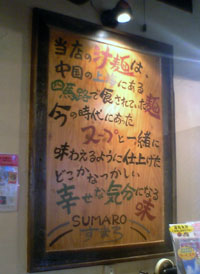 当店の汁麺は、
中国の上海にある
四馬路で食されていた麺
今の時代にあった
スープと一緒に
味わえるように仕上げた
どこかなつかしい
幸せな気分になる
味
SUMARO
すまろ